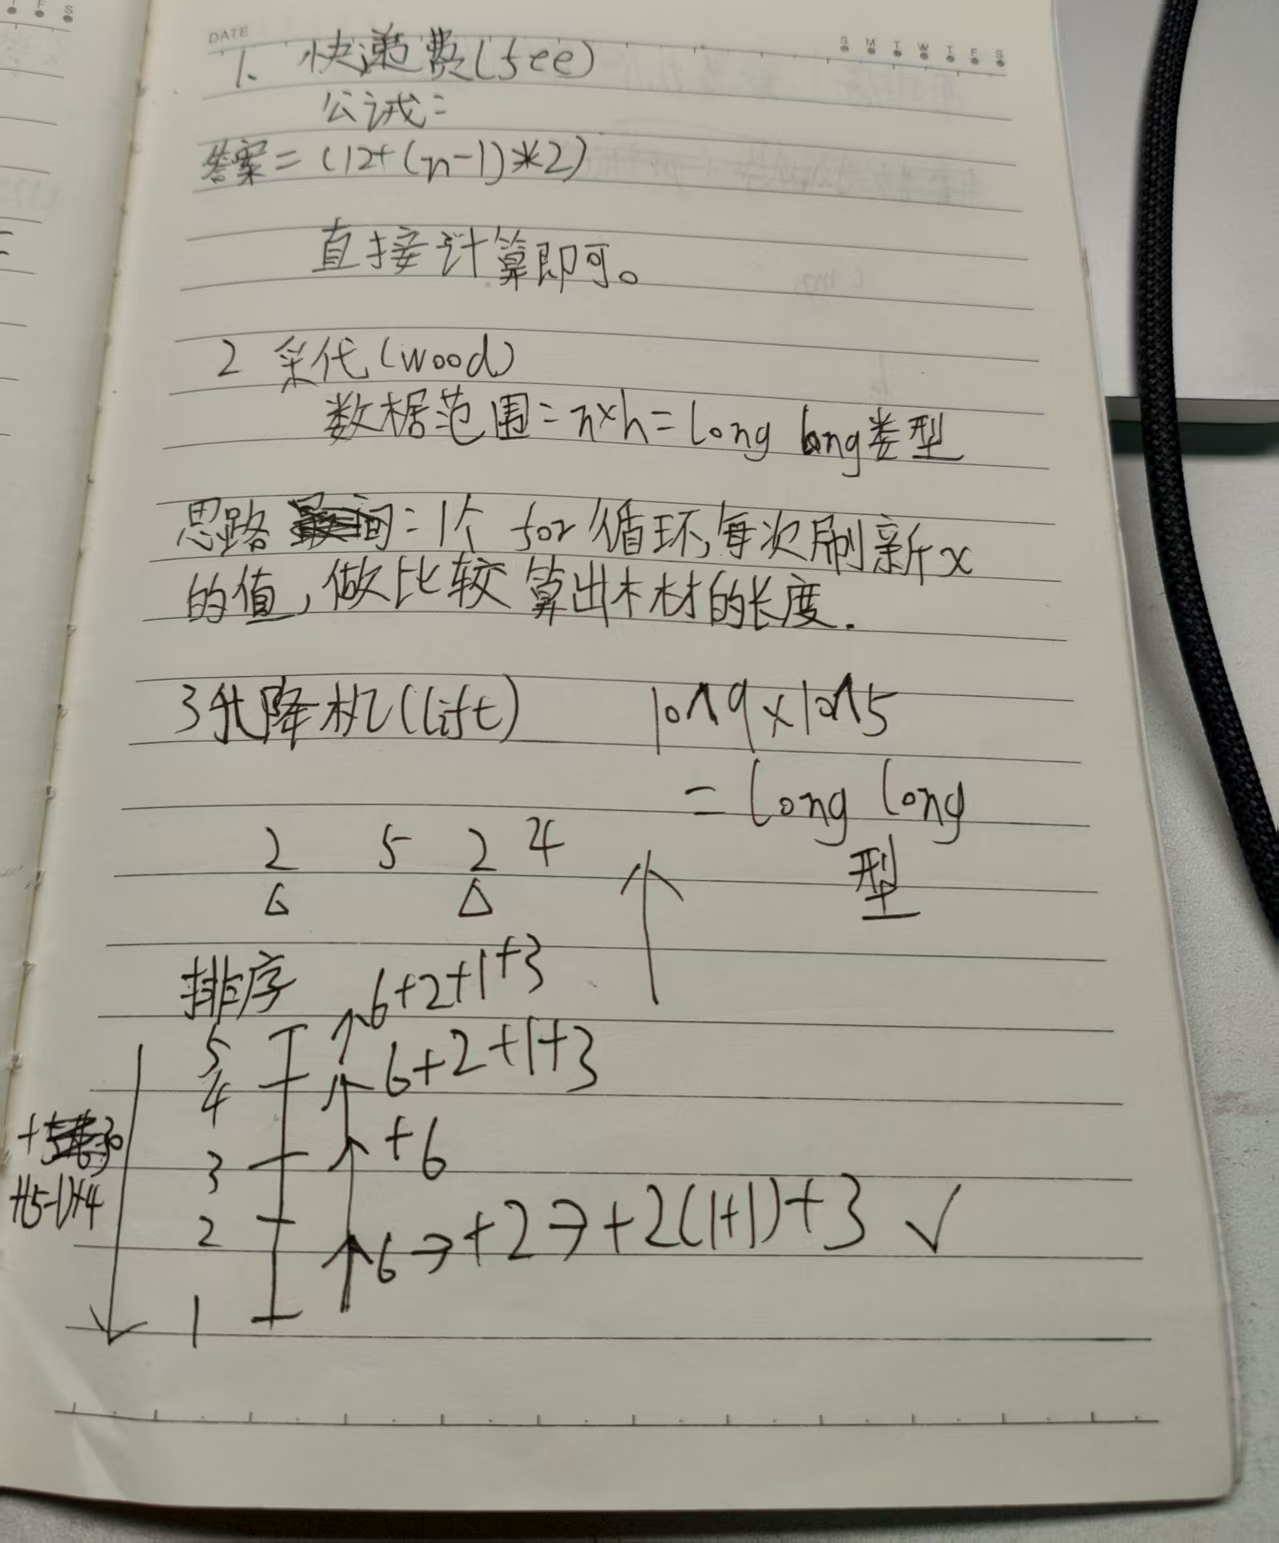 DATE
S M T W T F S
1、快递费(fee)
公式:
答案=(12+(n-1)*2)
直接计算即可。
2 采伐(wood)
数据范围=n×h=long long类型
思路:1个 for循环,每次刷新x
的值,做比较算出木材的长度.
3升降机(lift) 10^9×10^5
=long long
型
2 5 2 4
△ △
排序 6+2+1+3
5 6+2+1+3
4
3 +6
+(5-1)*4
2 6→+2→+2(1+1)+3 ✓
1